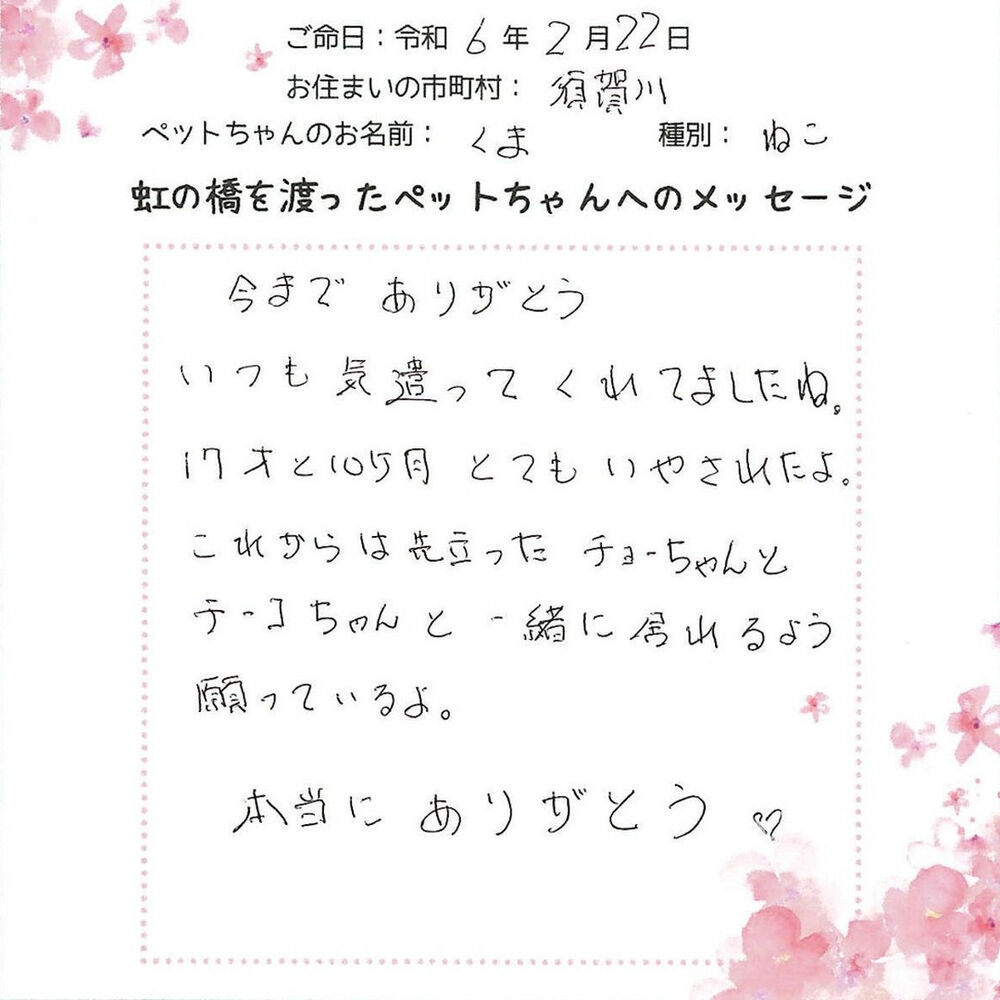 ご命日：令和 6 年 2 月 22 日
お住まいの市町村： 須賀川
ペットちゃんのお名前： くま 種別： ねこ
虹の橋を渡ったペットちゃんへのメッセージ
今まで ありがとう
いつも 気遣って くれてましたね。
17才と10ヶ月 とても いやされたよ。
これからは先立った チョーちゃんと
テーコちゃんと 一緒に 居れるよう
願っているよ。
本当に ありがとう ♡